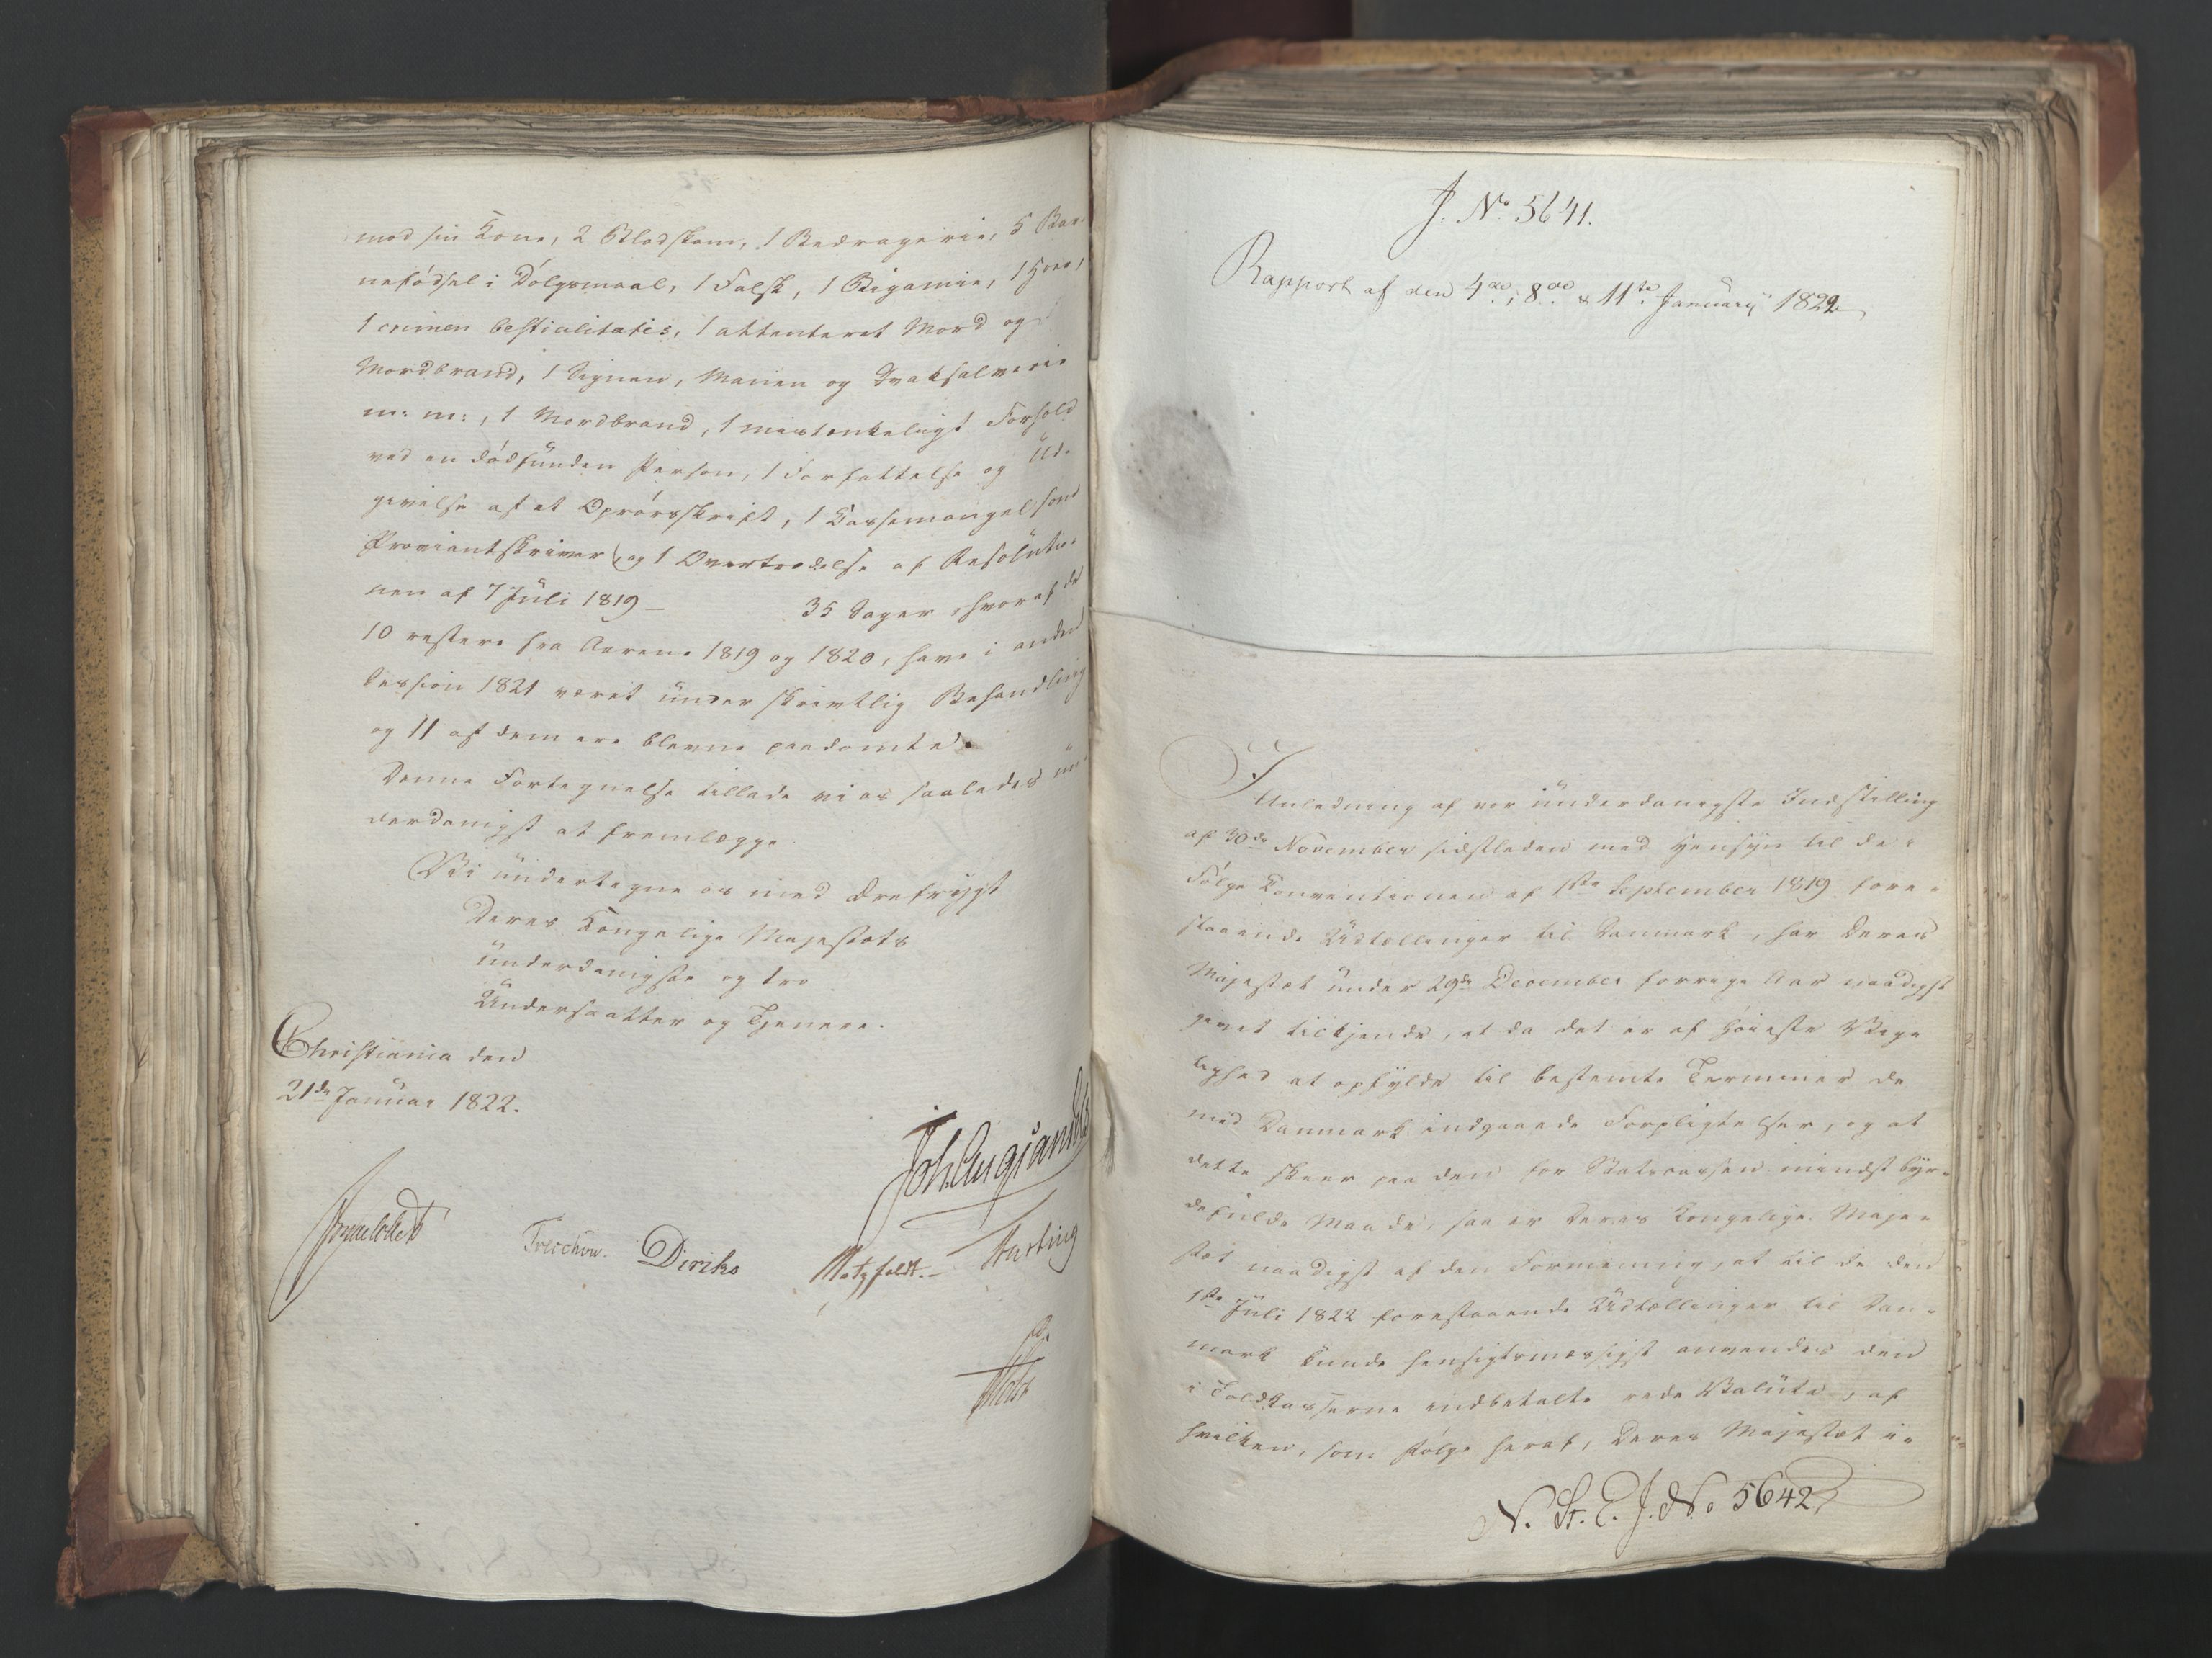 mod sin Kone, 2 Blodskam, 1 Bedragerie, 5 Bar-
nefödsel i Dölgsmaal, 1 Falsk, 1 Bigamie, 1 Hoer,
1 crimen bestialitatis, 1 attenteret Mord og
Mordbrand, 1 Signen, Manen og Qvaksalverie
m: m:, 1 Mordbrand, 1 mistænkeligt Forhold
ved en dödfunden Person, 1 Forfattelse og Ud-
givelse af et Oprörsskrift, 1 Kassemangel som
Proviantskriver og 1 Overtrædelse af Resolutio-
nen af 7 Juli 1819 — 35 Sager, hvoraf de
10 restere fra Aarene 1819 og 1820, have i anden
Session 1821 været under skrivtlig Behandling
og 11 af dem ere blevne paadömte.
Denne Fortegnelse tillade vi os saaledes un-
derdanigst at fremlægge.
Vi undertegne os med Ærefrygt
Deres Kongelige Majestæts
underdanigste og tro
Undersaatter og Tjenere.
Christiania den
21de Januar 1822.
Joh. Aug. Sandels
Sommerhielm
Treschow.
Diriks
Motzfeldt.
Fasting
Holst
J. No. 5641.
Rapport af den 4de, 8de & 11te Januarij 1822
I
Anledning af vor underdanigste Indstilling
af 30de November sidstleden med Hensyn til de i
Fölge Konventionen af 1ste September 1819 fore-
staaende Udtællinger til Danmark, har Deres
Majestæt under 29de December forrige Aar naadigst
givet tilkjende, at da det er af höieste Vig-
tighed at opfylde til bestemte Terminer de
med Danmark indgaaede Forpligtelser, og at
dette skeer paa den for Statscassen mindst byr-
defulde Maade, saa er Deres Kongelige Maje-
stæt naadigst af den Formening, at til de den
1ste Juli 1822 forestaaende Udtællinger til Dan-
mark kunde hensigtsmæssigst anvendes den
i Toldkasserne indbetalte rede Valuta, af
hvilken, som Fölge heraf, Deres Majestæt i-
N. St. E. J. No 5642